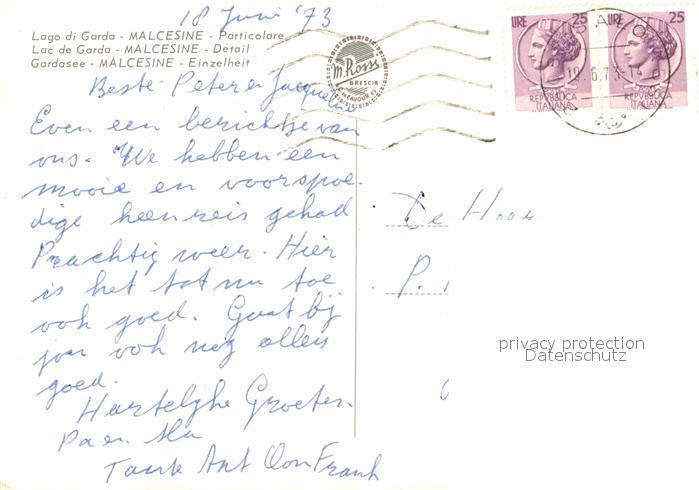 18 Juni '73
Lago di Garda - MALCESINE - Particolare
Lac de Garda - MALCESINE - Détail
Gardasee - MALCESINE - Einzelheit
m. Rossi
BRESCIA
LIRE 25
REPUBBLICA
ITALIANA
LIRE 25
REPUBBLICA
ITALIANA
Beste Peter en Jacqueline
Even een berichtje van
ons. We hebben een
mooie en voorspoe-
dige heenreis gehad
Prachtig weer. Hier
is het tot nu toe
ook goed. Gaat bij
jou ook nog alles
goed.
Hartelijke Groeten
Pa en Ma
Tante Ant Oom Frank
De Heer
P.
privacy protection
Datenschutz